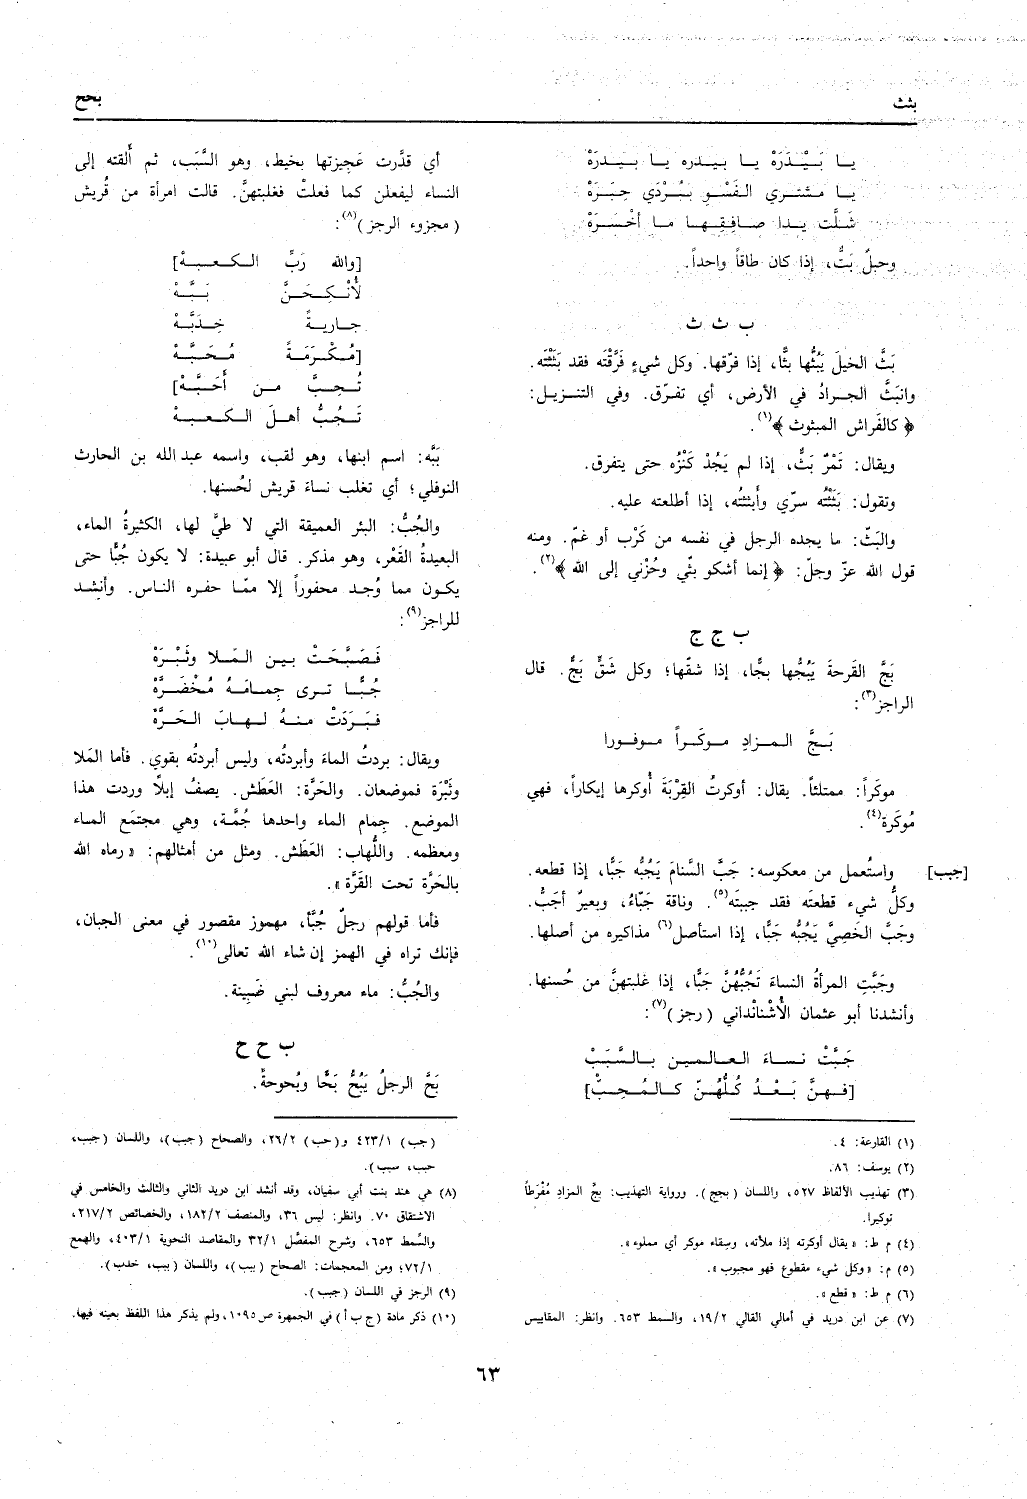 بثث
بحح
يـا بَـيْـذَرَهْ يـا بـيـذره يـا بـيـذرَهْ
يـا مـشتـري الـفَسْـوِ بـبُـرْدَي حِبَـرَهْ
شَـلَّت يـدا صـافِـقِـهـا مـا أخْـسَـرَهْ
وحبلٌ بَتٌّ، إذا كان طاقاً واحداً.
ب ث ث
بَثَّ الخيلَ يَبُثُّها بثًّا، إذا فرّقها. وكل شيءٍ فَرَّقْتَه فقد بَثَثْتَه.
وانبَثَّ الجـرادُ في الأرض، أي تفـرّق. وفي التنـزيـل:
﴿ كالفَراش المبثوث ﴾(١).
ويقال: تَمْرٌ بَثٌّ، إذا لم يَجُدْ كَنْزُه حتى يتفرق.
وتقول: بَثَثْتُه سرّي وأَبثثتُه، إذا أطلعته عليه.
والبَثّ: ما يجده الرجل في نفسه من كَرْب أو غمّ. ومنه
قول الله عزّ وجلّ: ﴿ إنما أشكو بثّي وحُزْني إلى الله ﴾(٢).
ب ج ج
بَجَّ القَرحةَ يَبُجُّها بجًّا، إذا شقّها؛ وكل شَقٍّ بَجٌّ. قال
الراجز(٣):
بَـجَّ الـمـزادِ مـوكَـراً مـوفـورا
موكَراً: ممتلئاً. يقال: أوكرتُ القِرْبَةَ أُوكرها إيكاراً، فهي
مُوكَرة(٤).
[جبب] واستُعمل من معكوسه: جَبَّ السَّنامَ يَجُبُّه جَبًّا، إذا قطعه.
وكلُّ شيء قطعتَه فقد جببتَه(٥). وناقة جَبّاءُ، وبعيرٌ أجَبُّ.
وجَبَّ الخَصِيَّ يَجُبُّه جَبًّا، إذا استأصل(٦) مذاكيره من أصلها.
وجَبَّتِ المرأةُ النساءَ تَجُبُّهُنَّ جَبًّا، إذا غلبتهنّ من حُسنها.
وأنشدنا أبو عثمان الأُشْنانْداني (رجز)(٧):
جَـبَّـتْ نـسـاءَ العـالـمـيـن بـالـسَّبَبْ
[فـهـنَّ بَـعْـدُ كُـلُّهُـنّ كـالـمُـحِـبّْ]
(١) القارعة: ٤.
(٢) يوسف: ٨٦.
(٣) تهذيب الألفاظ ٥٢٧، واللسان (بجج). ورواية التهذيب: بجَّ المزادِ مُفْرَطاً
توكيرا.
(٤) م ط: «يقال أوكرته إذا ملأته، وسِقاء موكر أي مملوء».
(٥) م: «وكل شيء مقطوع فهو مجبوب».
(٦) م ط: «قطع».
(٧) عن ابن دريد في أمالي القالي ١٩/٢، والسمط ٦٥٣. وانظر: المقاييس
أي قدَّرت عَجِيزتها بخيط، وهو السَّبَب، ثم أَلقته إلى
النساء ليفعلن كما فعلتْ فغلبتهنَّ. قالت امرأة من قُريش
(مجزوء الرجز)(٨):
[والله رَبِّ الـكـعـبـهْ]
لأُنْـكِـحَـنَّ بَـبَّـهْ
جـاريـةً خِـدَبَّـهْ
[مُـكْـرَمَـةً مُـحَـبَّـهْ
تُـحِـبَّ مـن أَحَـبَّـهْ]
تَـجُـبُّ أهـلَ الـكـعـبـهْ
بَبَّه: اسم ابنها، وهو لقب، واسمه عبد الله بن الحارث
النوفلي؛ أي تغلب نساءَ قريش لحُسنها.
والجُبُّ: البئر العميقة التي لا طيَّ لها، الكثيرةُ الماء،
البعيدةُ القَعْر، وهو مذكر. قال أبو عبيدة: لا يكون جُبًّا حتى
يكـون مما وُجـد محفوراً إلا ممّـا حفـره النـاس. وأنشـد
للراجز(٩):
فَـصَـبَّـحَـتْ بـيـن الـمَـلا وثَـبْـرَهْ
جُـبًّـا تـرى جِـمـامَـهُ مُـخْـضَـرَّهْ
فـبَـرَدَتْ مـنـهُ لـهـابَ الـحَـرَّهْ
ويقال: بردتُ الماءَ وأبردتُه، وليس أبردتُه بقوي. فأما المَلا
وثَبْرَة فموضعان. والحَرَّة: العَطَش. يصفُ إبلاً وردت هذا
الموضع. جِمام الماء واحدها جُمَّـة، وهي مجتمَع المـاء
ومعظمه. واللُّهاب: العَطَش. ومثل من أمثالهم: «رماه الله
بالحَرَّة تحت القَرَّة».
فأما قولهم رجلٌ جُبَّأ، مهموز مقصور في معنى الجبان،
فإنك تراه في الهمز إن شاء الله تعالى(١٠).
والجُبُّ: ماء معروف لبني ضَبِينة.
ب ح ح
بَحَّ الرجلُ يَبُحُّ بَحًّا وبُحوحةً.
(جب) ٤٢٣/١ و(حب) ٢٦/٢، والصحاح (جبب)، واللسان (جبب،
حبب، سبب).
(٨) هي هند بنت أبي سفيان، وقد أنشد ابن دريد الثاني والثالث والخامس في
الاشتقاق ٧٠. وانظر: ليس ٣٦، والمنصف ١٨٢/٢، والخصائص ٢١٧/٢،
والسَّمط ٦٥٣، وشرح المفصَّل ٣٢/١ والمقاصد النحوية ٤٠٣/١، والهمع
٧٢/١؛ ومن المعجمات: الصحاح (ببب)، واللسان (ببب، خدب).
(٩) الرجز في اللسان (جبب).
(١٠) ذكر مادة (ج ب أ) في الجمهرة ص ١٠٩٥، ولم يذكر هذا اللفظ بعينه فيها.
٦٣